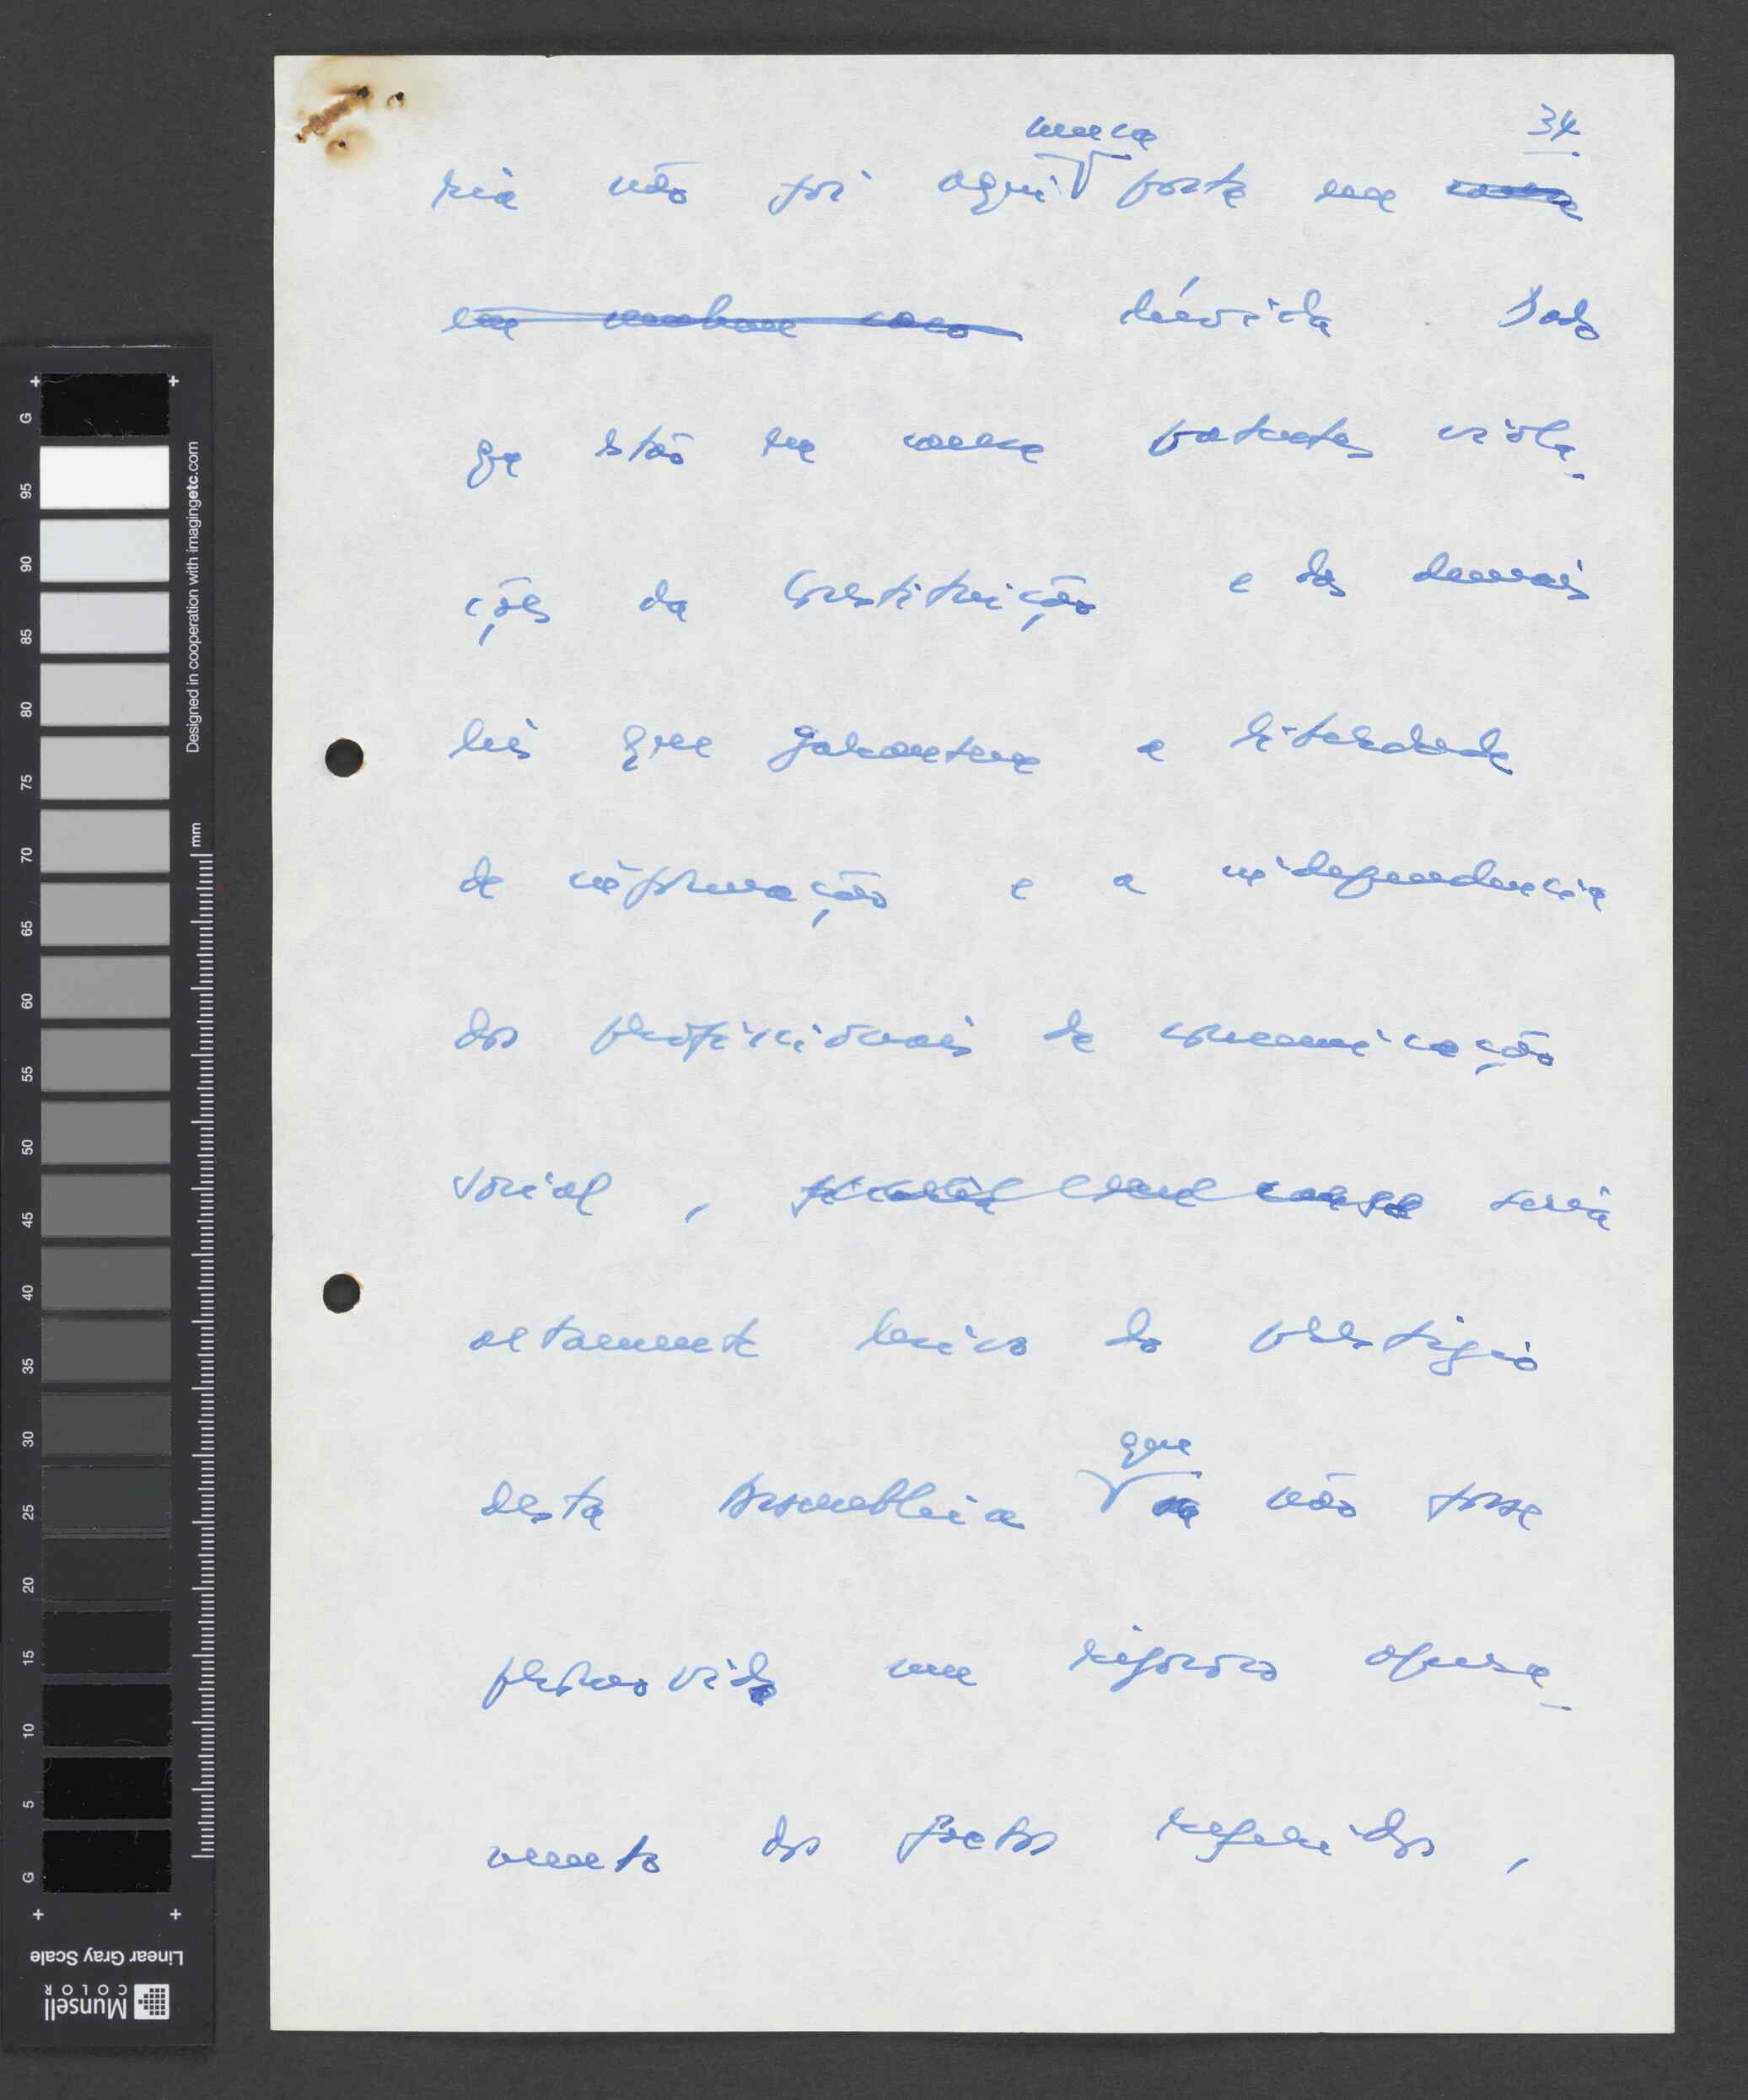 34
nunca
ria não foi aqui posta em
em nenhum caso dúvida Dado
que estão em causa patentes viola-
ções da Constituição e das demais
leis que garantem a liberdade
de informação e a independência
dos profissionais de comunicação
social, seria
altamente lesivo do prestígio
desta Assembleia
que
não fosse
promovido um rigoroso apura-
mento dos factos referidos,
G
95
90
85
80
75
70
65
60
55
50
45
40
35
30
25
20
15
10
5
G
Designed in cooperation with imagingetc.com
mm
Linear Gray Scale
Munsell
COLOR